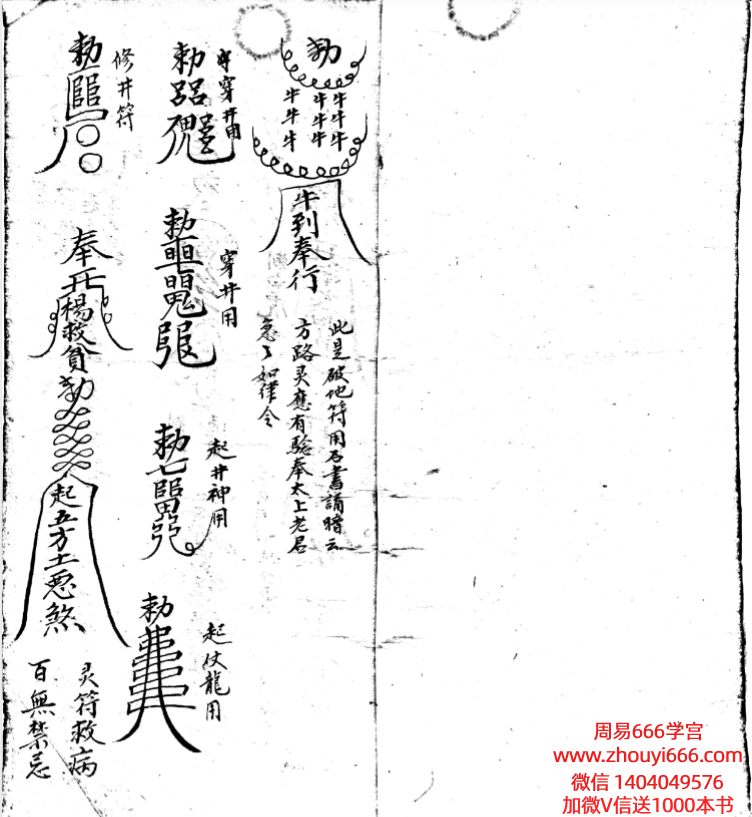 勅
牛牛牛
牛牛牛
牛牛牛
牛到奉行
此是破他符用石書誦暗云
方路灵應有驗奉太上老君
急々如律令
穿井用
勅
穿井用
勅
起井神用
勅
起伏龍用
勅
修井符
勅
奉
楊救貧
勅
起五方土惡煞
灵符救病
百無禁忌
周易666学宫
www.zhouyi666.com
微信 1404049576
加微V信送1000本书